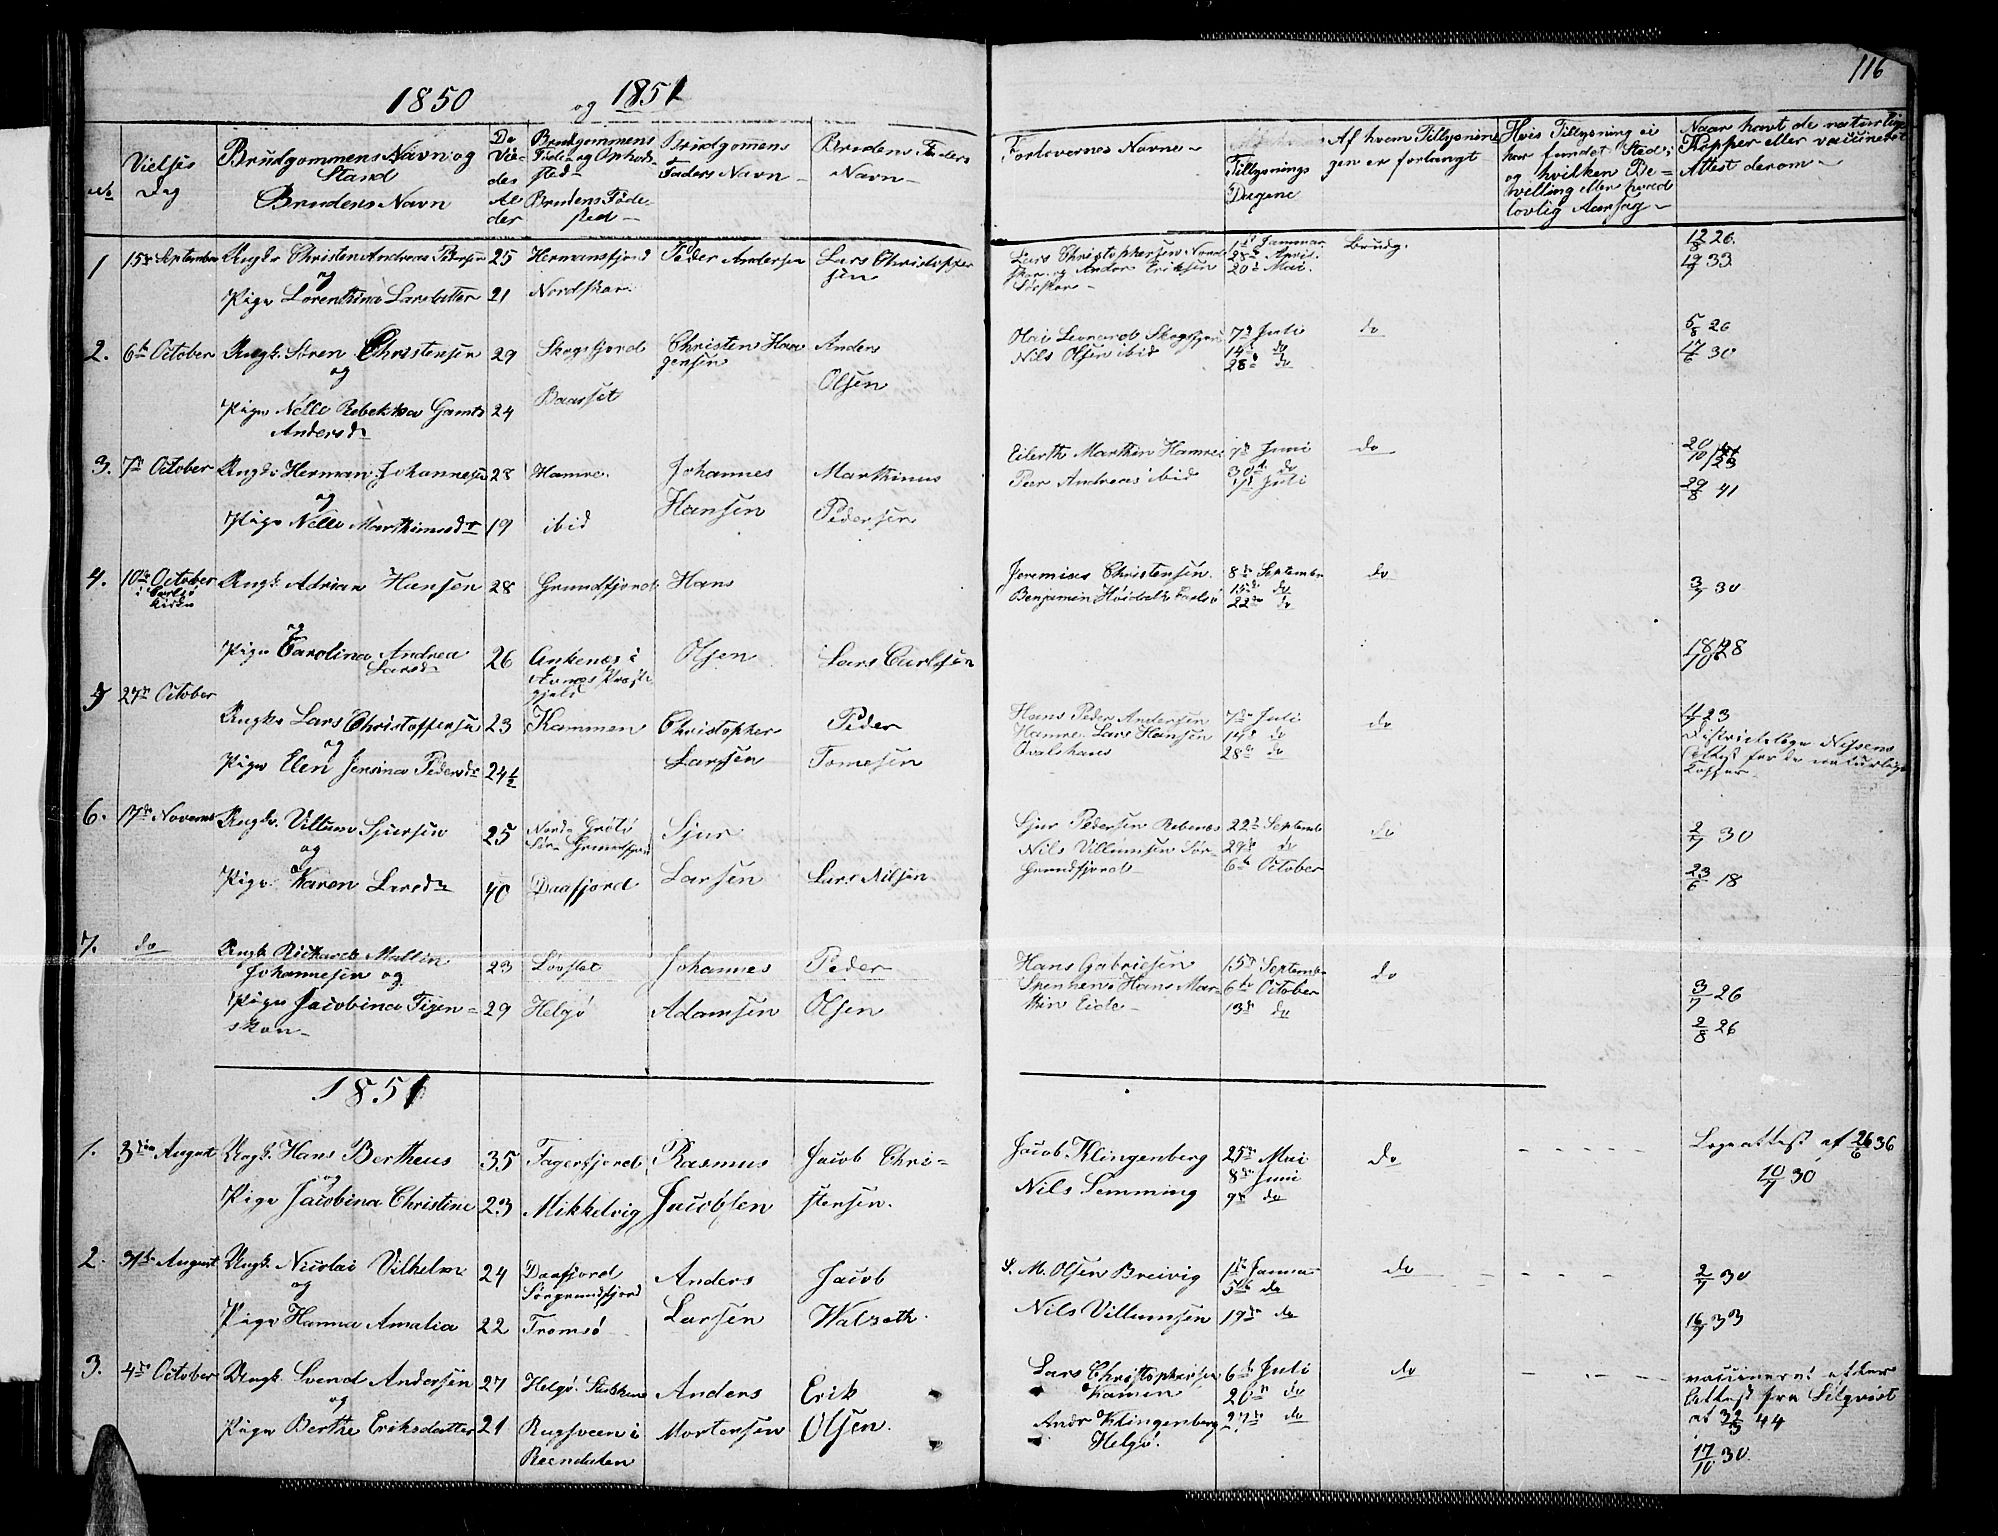 116
1850 og 1851
No
Vielses Dag
Brudgommens Navn og Stand
Brudens Navn
De Viedes Alder
Brudgommens Føde og Opholdssted
Brudens Fødested
Brudgomens Faders Navn
Brudens Faders Navn
Forlovernes Navne
Tillysnings Dagene
Af hvem Tillysningen er forlangt
Hvis Tillysning ei har fundet Sted, og hvilken Bevilling eller hvad lovlig Aarsag
Naar havt de naturlige Kopper eller vaccineret Attest derom
1 15de September Ungk. Christen Andreas Pedersen 25 Hermansfjord Peder Andersen Lars Christophersen
og
Pige Lorenthina Larsdatter 21 Nordskar
Lars Christophersen Nordskar og Andor Eriksen Sørskar 1ste Januar 28de April 20de Mai Brudg. 12/8 26. 19/9 33
2. 6te October Ungk. Søren Christensen 29 Skogsfjord Christen Haagensen Anders Olsen
og
Pige Nelle Rebekka Gamts Andersd. 24 Baarset
Olai Leonard Skogsfjord Nils Olsen ibid 7de Juli 14de do 28de do do 5/8 26 17/6 30
3. 7de October Ungk. Herman Johannesen 28 Hamre Johannes Hansen Marthinus Pedersen
og
Pige Nelle Marthinusdr 19 ibid
Eilerth Marthin Hamre Peer Andreas ibid Juni 30te do Juli do 20/10 23 29/8 41
4. 10de October i Carlsø Kirke Ungk. Adrian Hansen 28 Grundfjord Hans Olsen Lars Carlsen
og
Pige Carolina Andrea Larsd. 26 Ankenæs i
Præstegjeld
Jeremias Christensen Benjamin Høidahl Carlsø 8de September 15de do 22de do do 3/7 30 18/10 28
5 27de October
Ungk. Lars Christoffersen 23 Kammen Christopher Larssen Peder Tomesen
og
Pige Elen Jensina Pedersdr 24½
Hans Peder Andersen Hamre. Lars Hansen 7de Juli 14de do 28de do do 4/7 23
Districtslæge Nissens Attest for de naturlige Kopper
6. 17de Novemb Ungk. Villum Sjursen 25 Nord Grøtø Sør Grundfjord Sjur Larsen Lars Nilsen
og
Pige Karen Larsd. 40 Daafjord
Sjur Pedersen Rebenæs Nils Villumsen Sørgrundfjord 22de Septemb 29de do 6te October do 2/7 30 23/6 18
7. do Ungk. Richard Mallin Johannesen og 23 Løvslet Johannes Adamsen Peder Olsen
Pige Jacobina Figenskou 29 Helgø
Hans Gabrielsen Hans Marthin Eide 15de Septembe 6te October 13de do do 3/7 26 2/8 26
1851
1. 3die August Ungk. Hans Bertheus 35 Fagerfjord Rasmus Jacobsen Jacob Christensen.
og
Pige Jacobina Christine 23 Mikkelvig
Jacob Klingenberg Nils Lemming 25de Mai 8de Juni 9de do do Lægeattest af 26/6 36 10/7 30
2. 31te August Ungk. Nicolai Vilhelm 24 Daafjord Sørgrundfjord Anders Larsen Jacob Walsøth.
og
Pige Hanna Amalia 22 Tromsø
S. M. Olsen Breivig Nils Villumsen 1ste Januar 5te do 19de do do 2/7 30 16/9 33
3. 4de October Ungk. Svend Andersen 27 Helgø Anders Mortensen Erik Olsen.
og
Pige Berthe Eriksdatter 21 Rugsveen i Reendalen
Lars Christophersen Kamen Andr Klingenberg Helgø. 6te Juli 20de do 27de do do
vaccineret efter Attest fra Selqvist af 3 44 17/10 30.